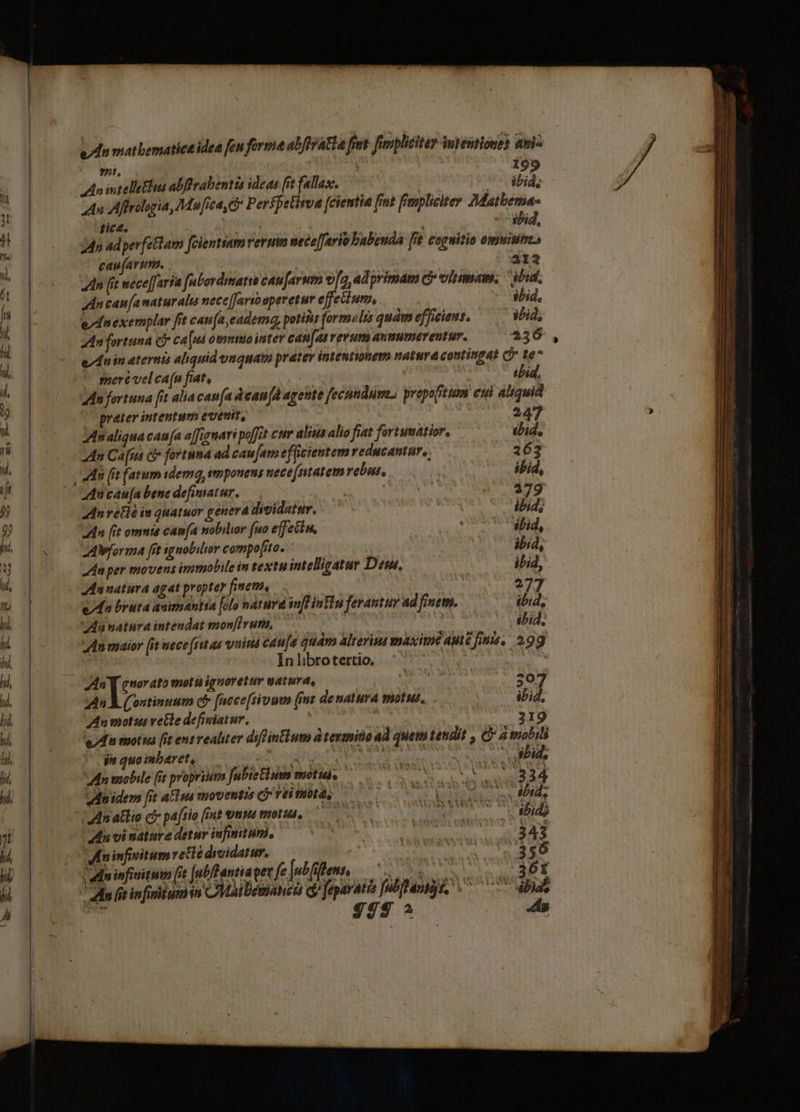 An mathematica idea seu forma abstracta sint simpliciter intentiones ani-
mi, 199
An intellectus abstrahentis ideas sit fallax. ibid,
An Astrologia, Musica, & Perspectiva scientia sint simpliciter Mathema-
ticæ. ibid,
An ad perfectam scientiam rerum necessario habenda sit cognitio omnium
causarum. 212
An sit necessaria subordinatio causarum usq, ad primam & ultimam. ibid.
An causa naturalis necessario operetur effectum. ibid,
An exemplar sit causa, eademq, potius formalis quàm efficiens. ibid,
An fortuna & casus omnino inter causas rerum annumerentur. 236
An in æternis aliquid unquam præter intentionem naturæ contingat & te-
merè vel casu fiat, ibid,
An fortuna sit alia causa à causa agente secundum propositum cui aliquid
præter intentum evenit, 247
An aliqua causa assignari possit cur alius alio fiat fortunatior. ibid.
An Casus & fortuna ad causam efficientem reducantur. 263
An sit fatum idemq, imponens necessitatem rebus. ibid,
An causa bene definiatur. 279
An rectè in quatuor genera dividatur. ibid;
An sit omnis causa nobilior suo effectu, ibid,
An forma sit ignobilior composito. ibid,
An per movens immobile in textu intelligatur Deus. ibid,
An natura agat propter finem, 277
An bruta animantia solo naturæ instinctu ferantur ad finem. ibid,
An natura intendat monstrum, ibid,
An maior sit necessitas unius causæ quàm alterius maximè antè finis. 299
In libro tertio.
An Ignorato motu ignoretur natura, 307
An Continuum & successivum sint de natura motus, ibid.
An motus rectè definiatur. 319
An motus sit ens realiter distinctum à termino ad quem tendit, & à mobili
in quo inhæret, ibid,
An mobile sit proprium subiectum motus. 334
An idem sit actus moventis & rei motæ, ibid;
An actio & passio sint unus motus. ibid;
An vi naturæ detur infinitum. 343
An infinitum rectè dividatur. 356
An infinitum sit substantia per se subsistens, 361
An sit infinitum in Mathematicis & separatis substantijs. ibid,
qqq 2 An